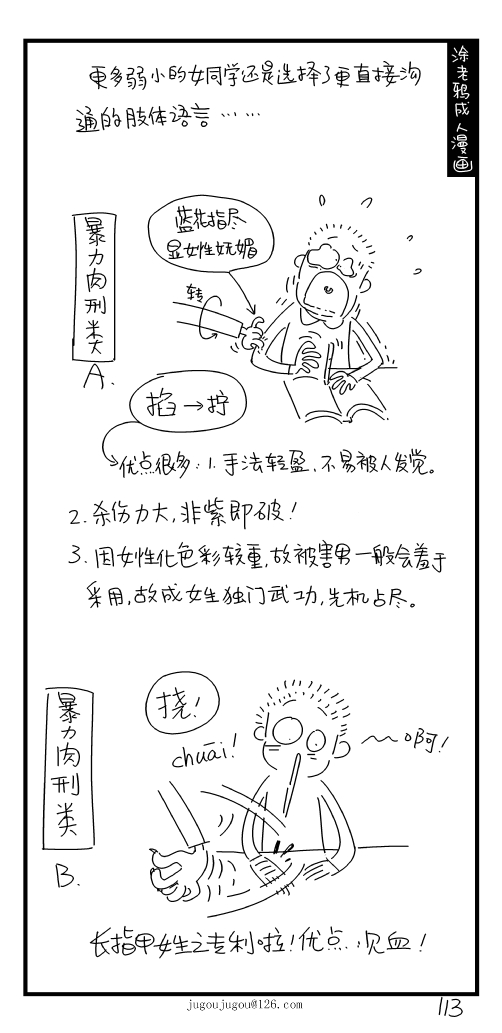 涂老鸦成人漫画
更多弱小的女同学还是选择了更直接沟
通的肢体语言……
暴力肉刑类
A.
蓝花指尽
显女性妩媚
转
掐→拧
优点很多:1.手法轻盈、不易被人发觉。
2.杀伤力大,非紫即破!
3.因女性化色彩较重,故被害男一般会羞于
采用,故成女生独门武功,先机占尽。
暴力肉刑类
B.
挠!
chuāi!
～～啊!
长指甲女生之专利啦!优点:见血!
jugoujugou@126.com
113